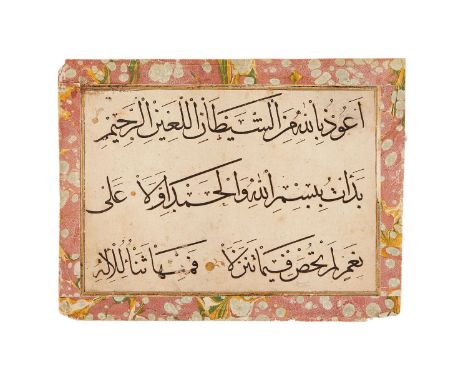 اَعُوذُ بِاللّٰهِ مِنَ الشَّيْطَانِ اللَّعِينِ الرَّجِيمِ
بَدَأْتُ بِبِسْمِ اللّٰهِ وَالْحَمْدُ اَوَّلًا عَلٰى
نِعَمٍ لَمْ تُحْصَ فِيمَا تَنَزَّلَا فَمِنْهَا ثَنَاءٌ لِلْاِلٰهِ